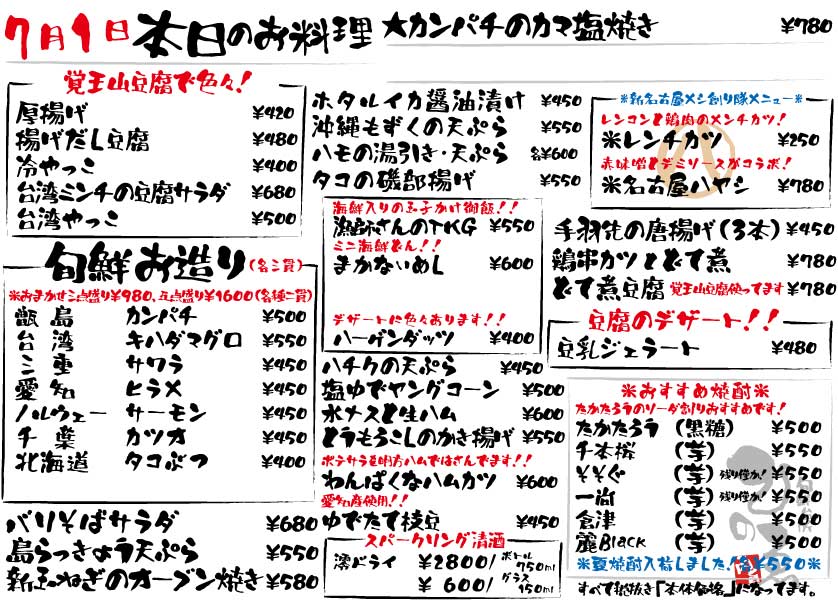 7月9日 本日のお料理
★カンパチのカマ塩焼き ¥780
覚王山豆腐で色々!
厚揚げ ¥420
揚げだし豆腐 ¥480
冷やっこ ¥400
台湾ミンチの豆腐サラダ ¥680
台湾やっこ ¥500
旬鮮お造り(各二貫)
※おまかせ三点盛り¥980、五点盛り¥1600(各種二貫)
甑島 カンパチ ¥500
台湾 キハダマグロ ¥550
三重 サワラ ¥450
愛知 ヒラメ ¥450
ノルウェー サーモン ¥450
千葉 カツオ ¥450
北海道 タコぶつ ¥400
パリそばサラダ ¥680
島らっきょう天ぷら ¥550
新玉ねぎのオーブン焼き ¥580
ホタルイカ醤油漬け ¥450
沖縄もずくの天ぷら ¥550
ハモの湯引き・天ぷら 各¥600
タコの磯部揚げ ¥550
海鮮入りの玉子かけ御飯!!
漁師さんのTKG ¥550
ミニ海鮮どん!!
まかないめし ¥600
デザートに色々あります!!
ハーゲンダッツ ¥400
ハチクの天ぷら ¥450
塩ゆでヤングコーン ¥500
水ナスと生ハム ¥600
とうもろこしのかき揚げ ¥550
ポテサラを味方ハムではさんでます!!
わんぱくなハムカツ ¥600
愛知産使用!!
ゆでたて枝豆 ¥450
スパークリング清酒
澪ドライ ¥2800/ボトル750ml
¥600/グラス150ml
※新名古屋メシ創り隊メニュー※
レンコンと鶏肉のメンチカツ!
※レンチカツ ¥250
赤味噌とデミソースがコラボ!
※名古屋ハヤシ ¥780
手羽先の唐揚げ(3本) ¥450
鶏串カツとどて煮 ¥780
どて煮豆腐 覚王山豆腐使ってます ¥780
豆腐のデザート!!
豆乳ジェラート ¥480
※おすすめ焼酎※
たかたろうのソーダ割りおすすめです!
たかたろう (黒糖) ¥500
千本桜 (芋) ¥500
そそぐ (芋) 残り僅か! ¥500
一尚 (芋) 残り僅か! ¥500
倉津 (芋) ¥500
麗Black (芋) ¥500
※夏焼酎入荷しました!各¥550※
すべて税抜き「本体価格」になってます。